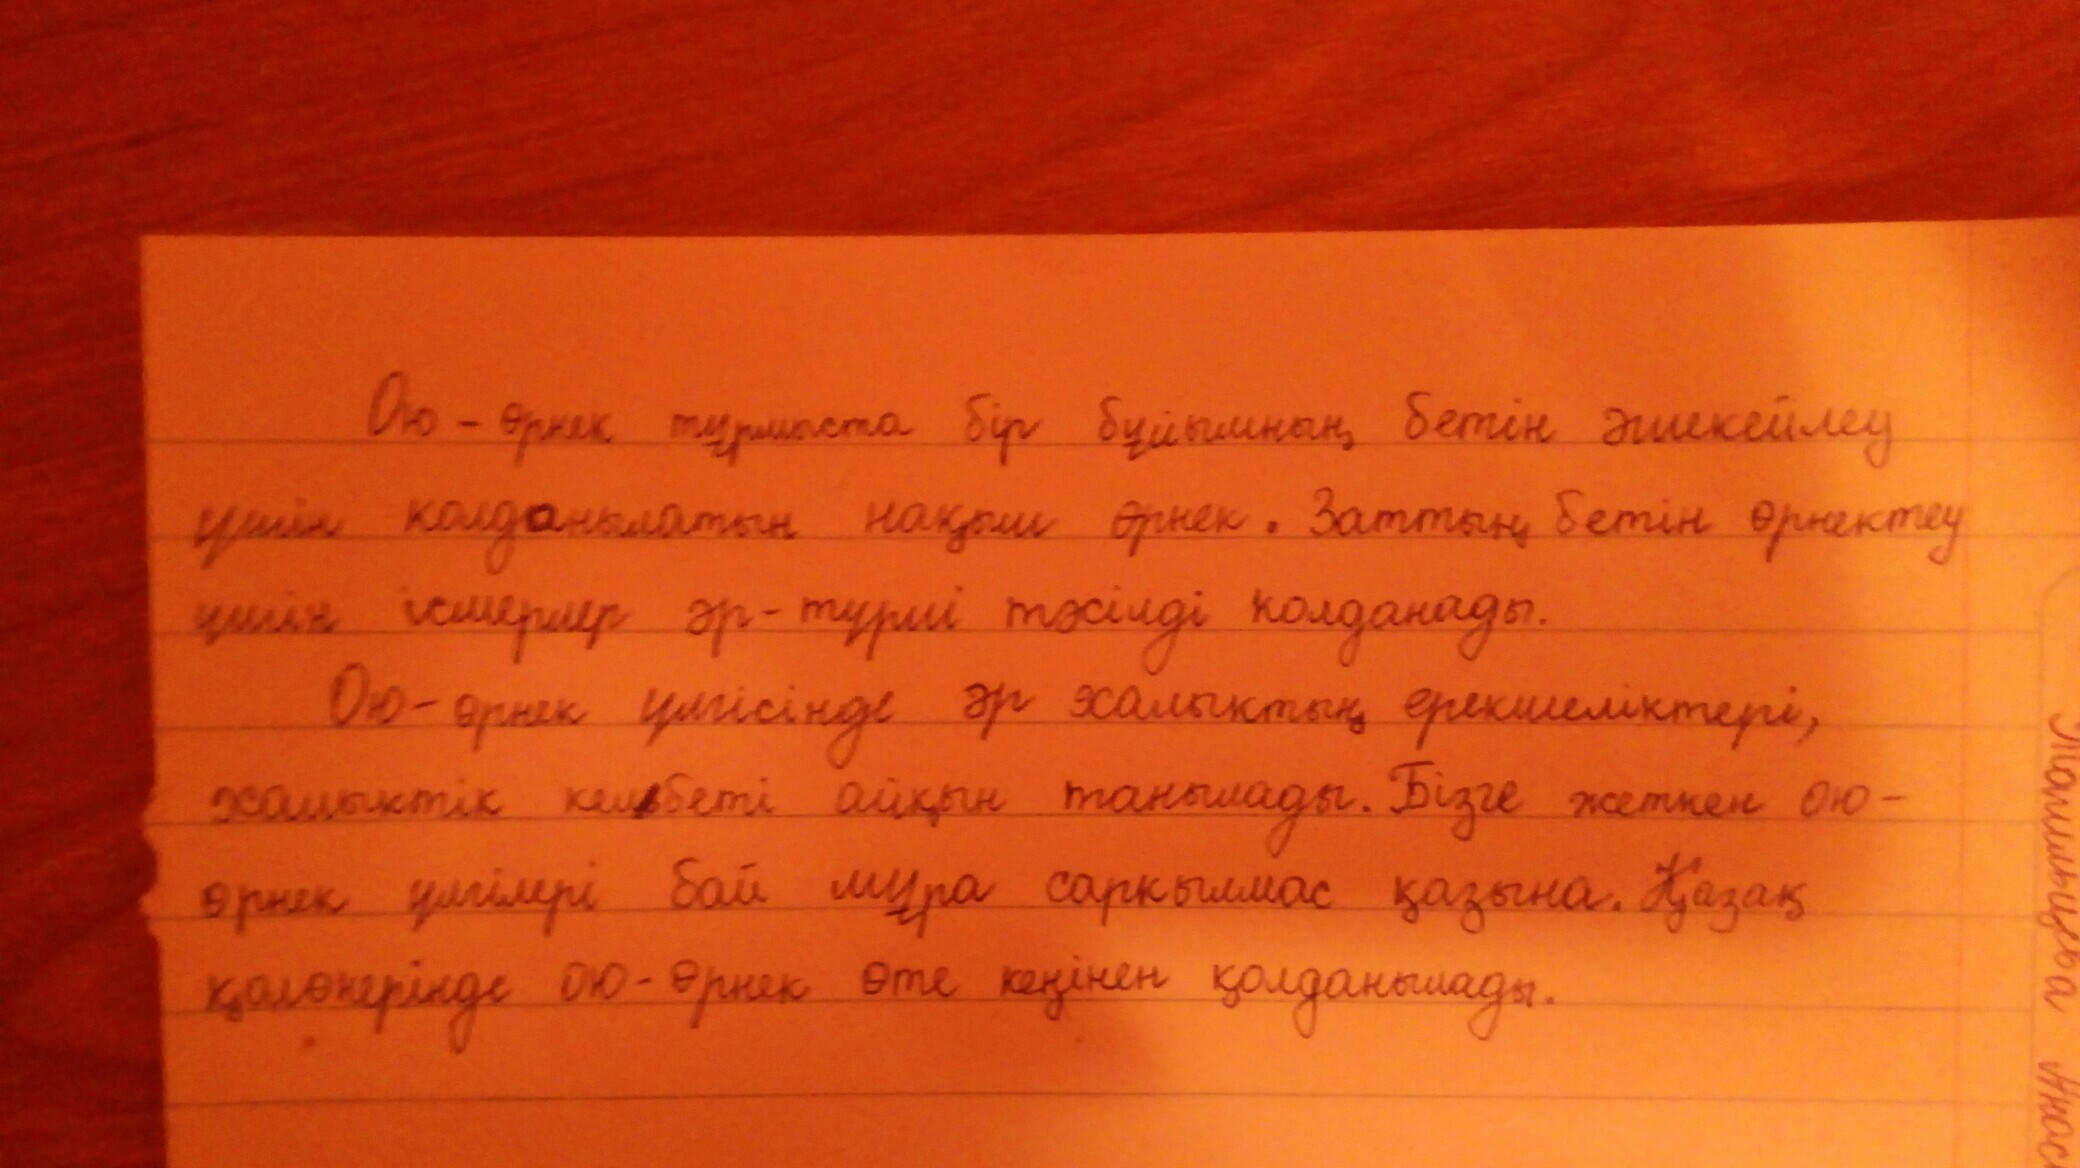 Ою-өрнек тұрмыста бір бұйымның бетін әшекейлеу
үшін колданылатын нақыш өрнек. Заттың бетін өрнектеу
үшін ісмерлер әр-түрлі тәсілді колданады.
Ою-өрнек үлгісінде әр халыктың ерекшеліктері,
халыктік келбеті айқын танылады. Бізге жеткен ою-
өрнек үлгілері бай мұра саркылмас қазына. Қазақ
қолөнерінде ою-өрнек өте кеңінен қолданылады.